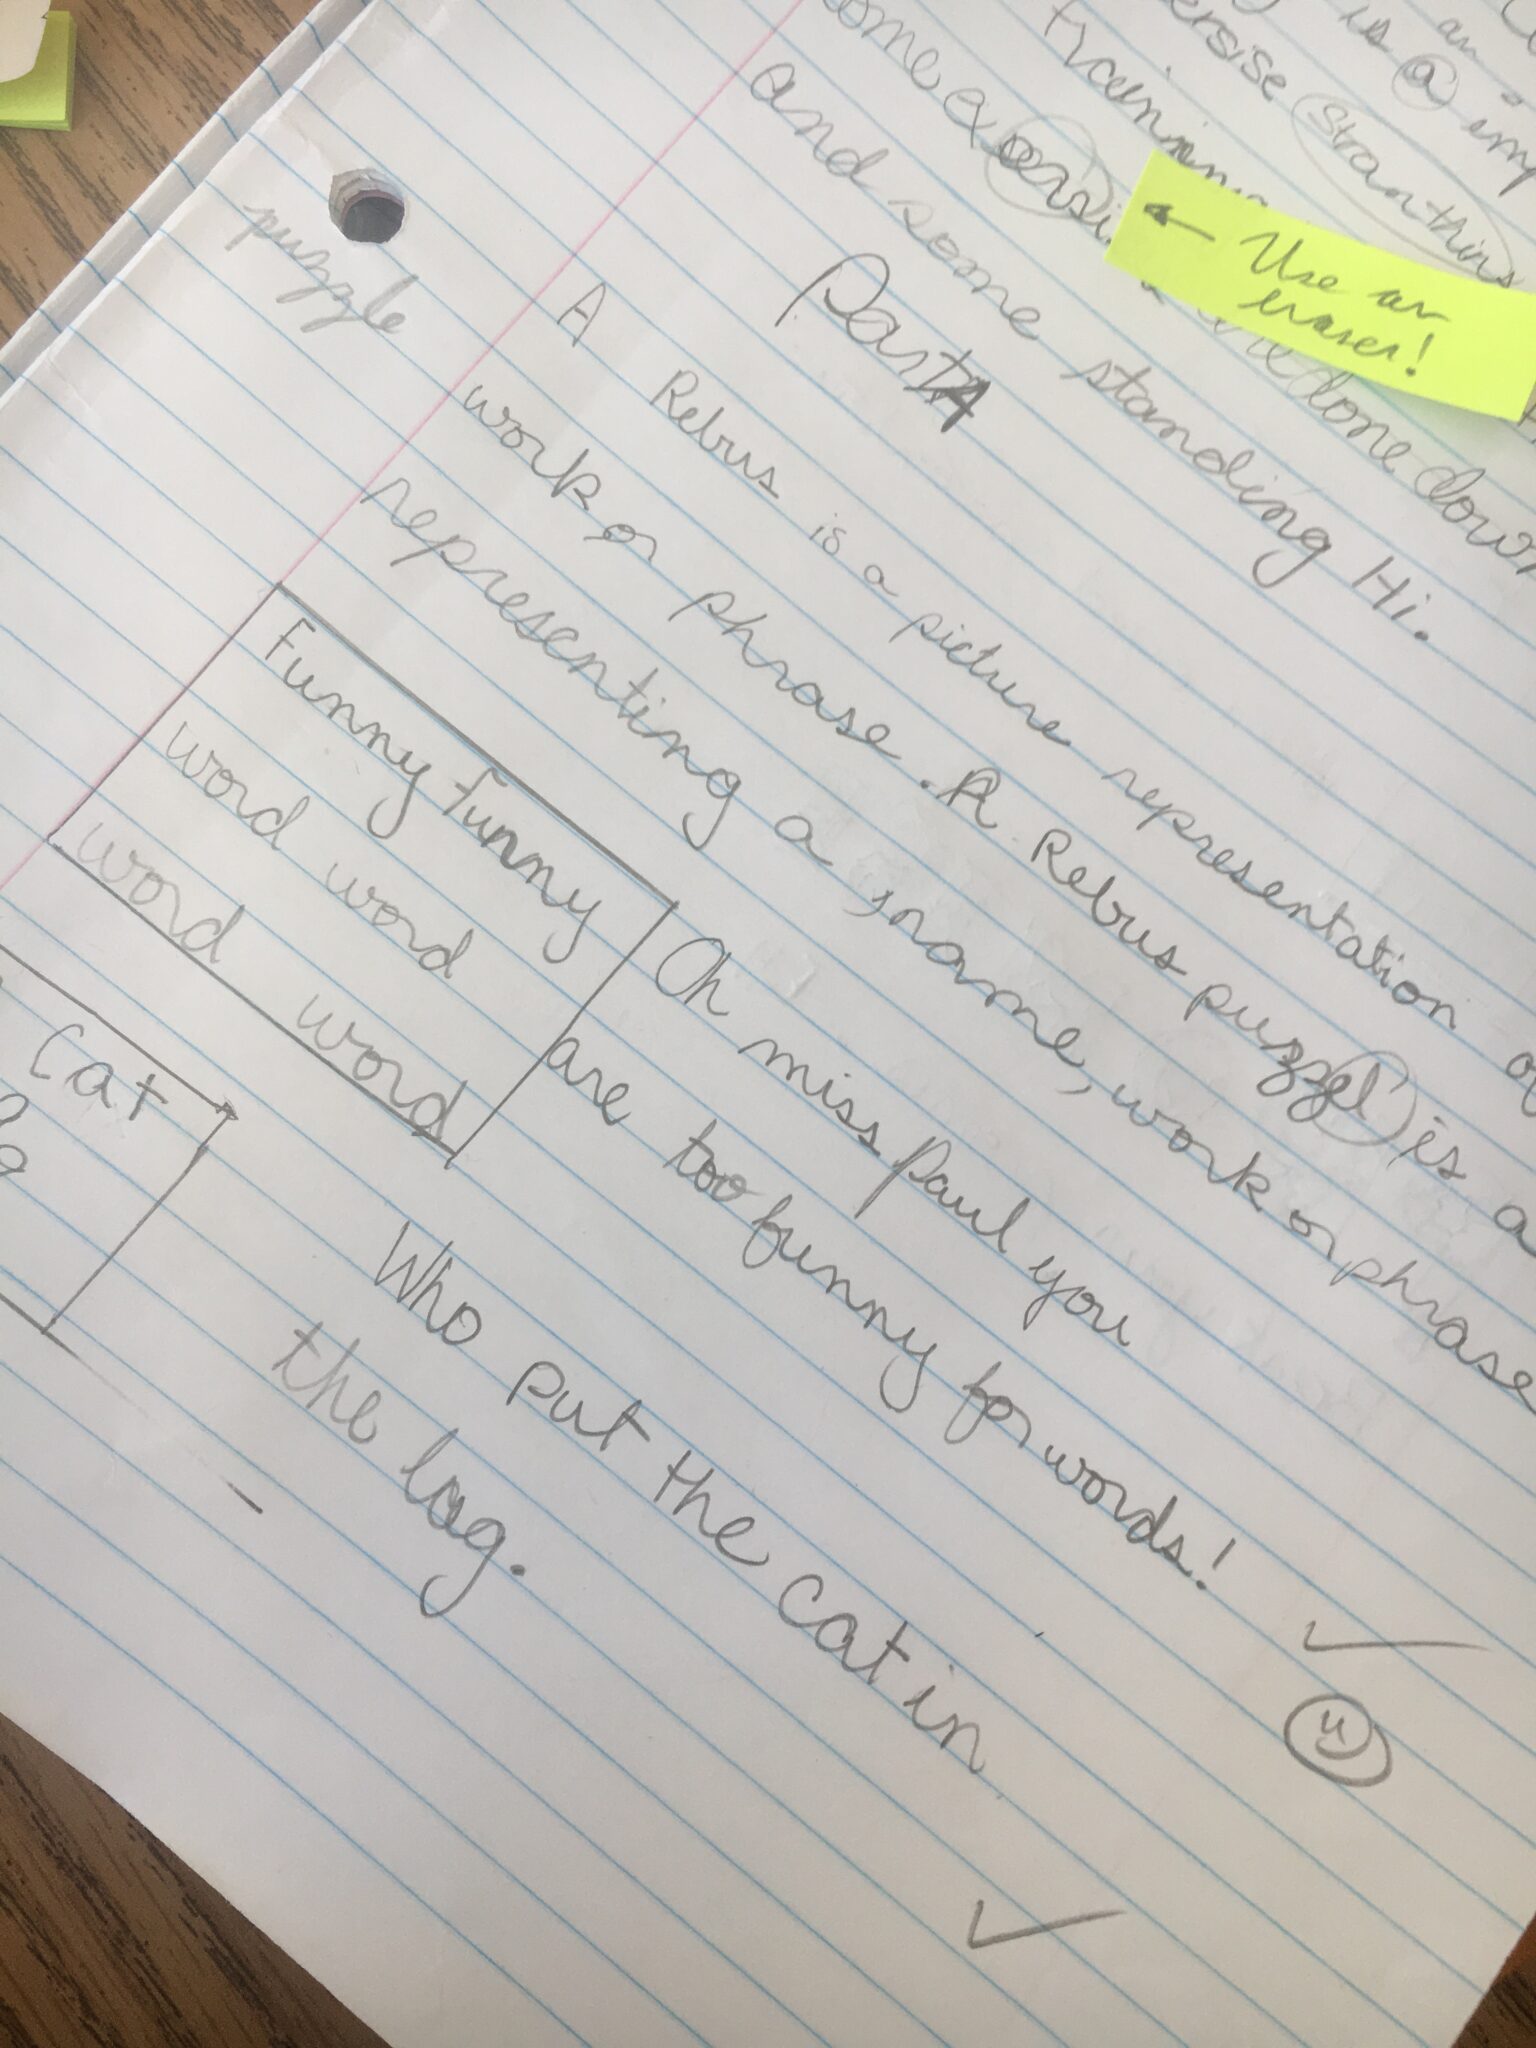 is a
ersise Stranthins
training
some exersi
and some standing Hi.
done down
← Use an
eraser!
Part A
puzzle
A Rebus is a picture representation of
work or phrase. A Rebus puzzel is a
representing a name, work or phrase
Funny Funny
word word
word word
Oh miss Paul you
are too funny for words!
cat
Who put the cat in
the bag.